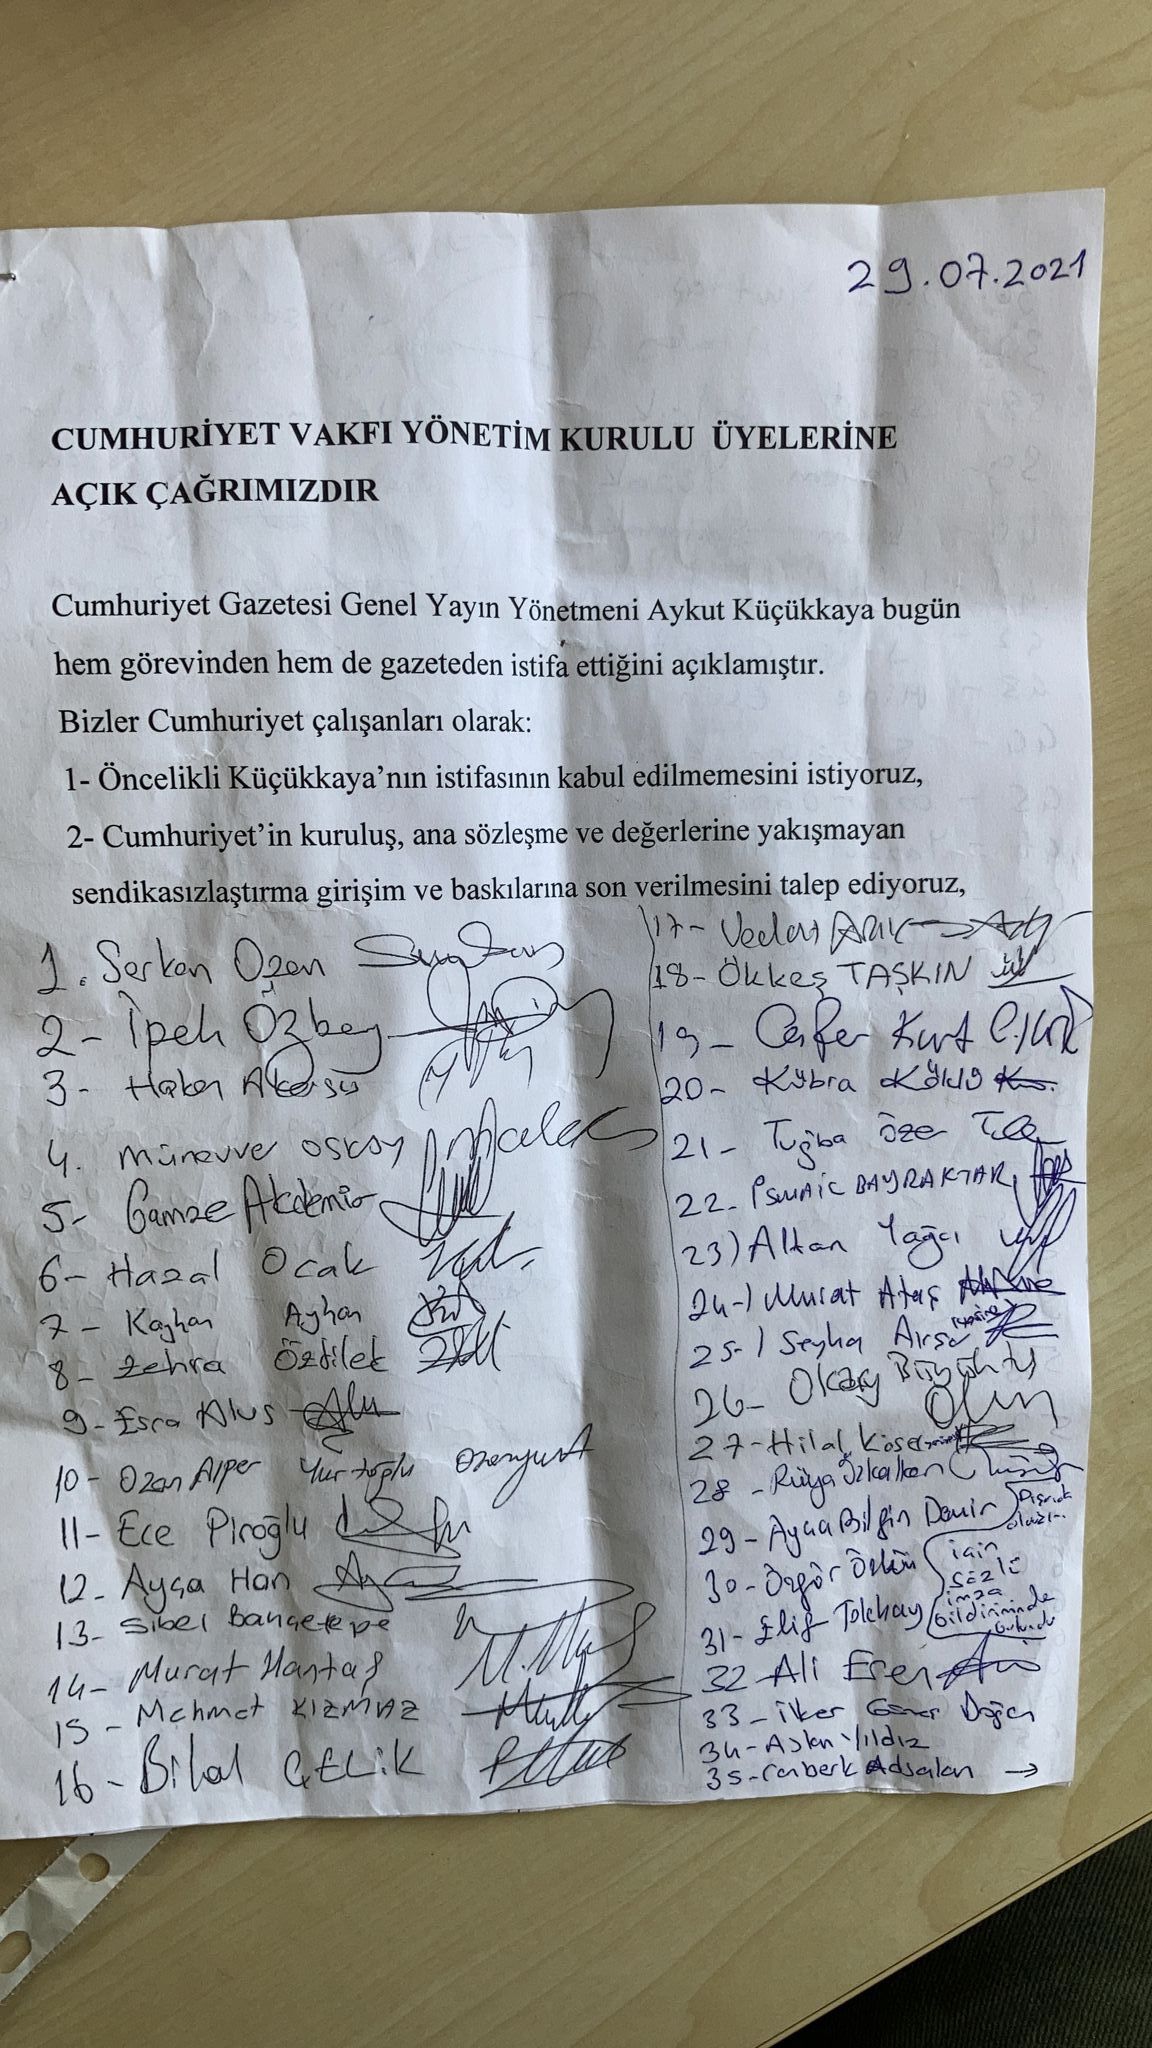 29.07.2021
CUMHURİYET VAKFI YÖNETİM KURULU ÜYELERİNE
AÇIK ÇAĞRIMIZDIR
Cumhuriyet Gazetesi Genel Yayın Yönetmeni Aykut Küçükkaya bugün
hem görevinden hem de gazeteden istifa ettiğini açıklamıştır.
Bizler Cumhuriyet çalışanları olarak:
1- Öncelikli Küçükkaya’nın istifasının kabul edilmemesini istiyoruz,
2- Cumhuriyet’in kuruluş, ana sözleşme ve değerlerine yakışmayan
sendikasızlaştırma girişim ve baskılarına son verilmesini talep ediyoruz,
1. Serkan Ozan
2- İpek Özbey
3- Hakan Akarsu
4. Münevver Oskay
5- Gamze Akdemir
6- Hazal Ocak
7- Kayhan Ayhan
8- Zehra Özdilek
9- Esra Alus
10- Ozan Alper Yurtoğlu
11- Ece Piroğlu
12- Ayça Han
13- Sibel Bahçetepe
14- Murat Hantaş
15- Mehmet KIZMAZ
16- Bilal ÇELİK
17- Vedat Arık
18- Ökkeş TAŞKIN
19- Cafer Kurt
20- Kübra Köklü
21- Tuğba Özer
22- İSMAİL BAYRAKTAR
23) Altan Yağcı
24-) Murat Ataş
25-) Seyhan
26- Olcay Büyüktaş
27- Hilal Köse
28- Rüya Özkalkan
29- Ayça Bilgin Demir
30- Özgör
31- Elif Tokbay
Dışarıda
için
sözlü
imza
bildiriminde
bulundu
32- Ali Eren
33- ilker Doğan
34- Aslan Yıldız
35- Canberk Adsalan →